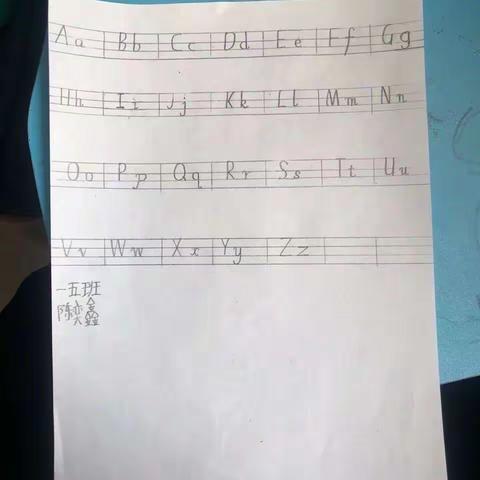 Aa Bb Cc Dd Ee Ff Gg
Hh Ii Jj Kk Ll Mm Nn
Oo Pp Qq Rr Ss Tt Uu
Vv Ww Xx Yy Zz
一五班
陈奕鑫